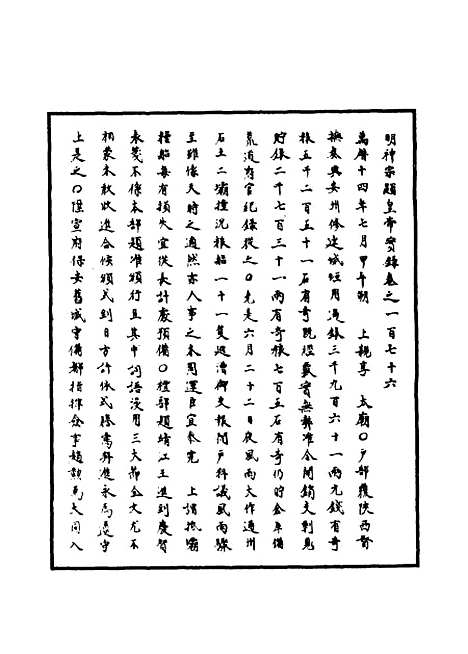 明神宗顯皇帝實錄卷之一百七十六
萬曆十四年七月甲午朔　上親享　太廟○戶部覆陝西督
撫奏興安州修建城垣用過銀三千九百六十一兩九錢有奇
粮五千二百五十一石有奇旣經覈實無弊准令開銷支剩見
貯銀二千七百三十一兩有奇粮七百五石有奇仍貯金庫備
荒消府官紀錄從之○先是六月二十二日夜風雨大作通州
石土二壩撞沉粮船一十一隻巡漕御史報聞戶科議風雨驟
至雖係天時之適然亦人事之未周運臣宜參究　上謂抵壩
糧船每有損失宜從長計處預備○禮部題靖江王進到慶賀
表箋不係本部題准頒行且其中詞語漫用三大節全文尤不
相蒙未敢收進合候頒式到日方許依式謄寫將進永爲遵守
上是之○陞宣府保安舊城守備都指揮僉事趙勳爲大同入